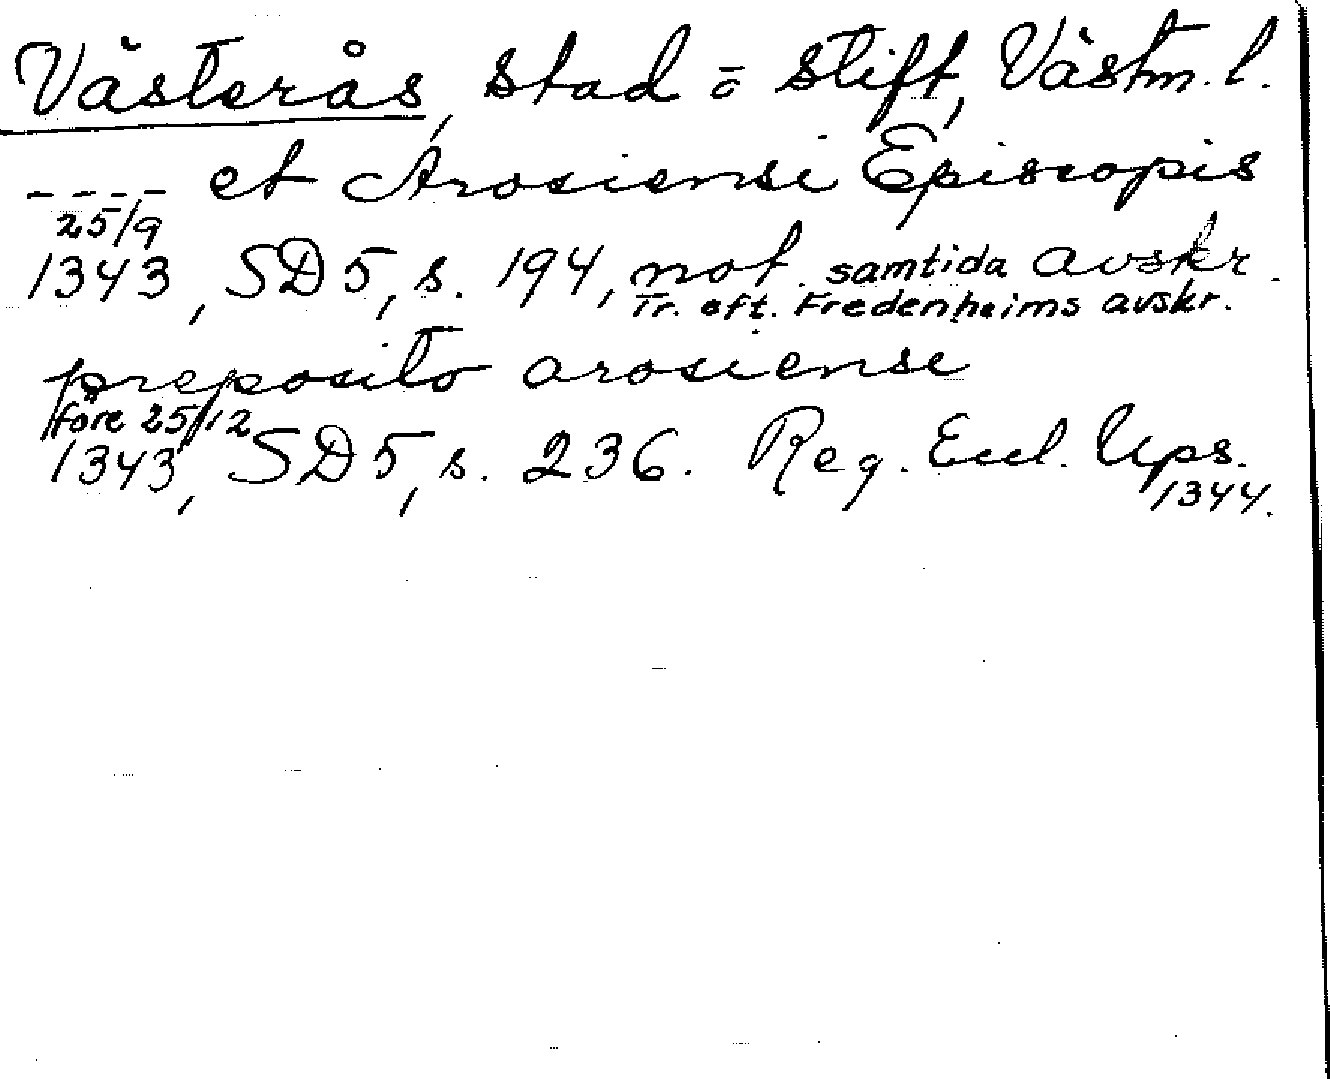 Västerås, stad o stift, Västm. l.
---- et Arosiensi Episcopis
25/9
1343, SD 5, s. 194, not. samtida avskr.
Tr. eft. Fredenheims avskr.
preposito arosiense
före 25/12
1343, SD 5, s. 236. Reg. Eccl. Ups.
1344.